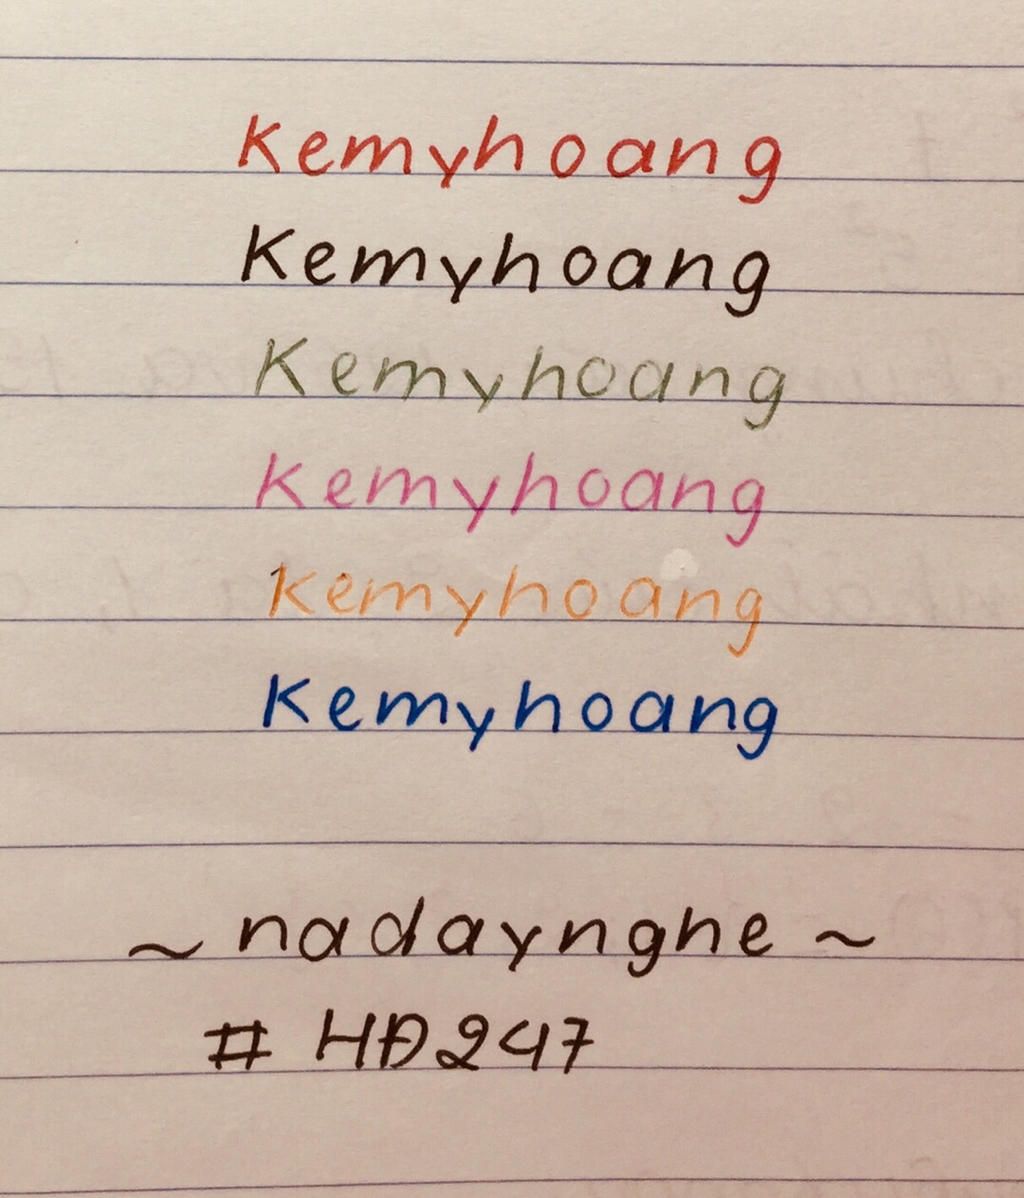 Kemyhoang
Kemyhoang
Kemyhoang
Kemyhoang
Kemyhoang
Kemyhoang
~ nadaynghe ~
# HĐ247